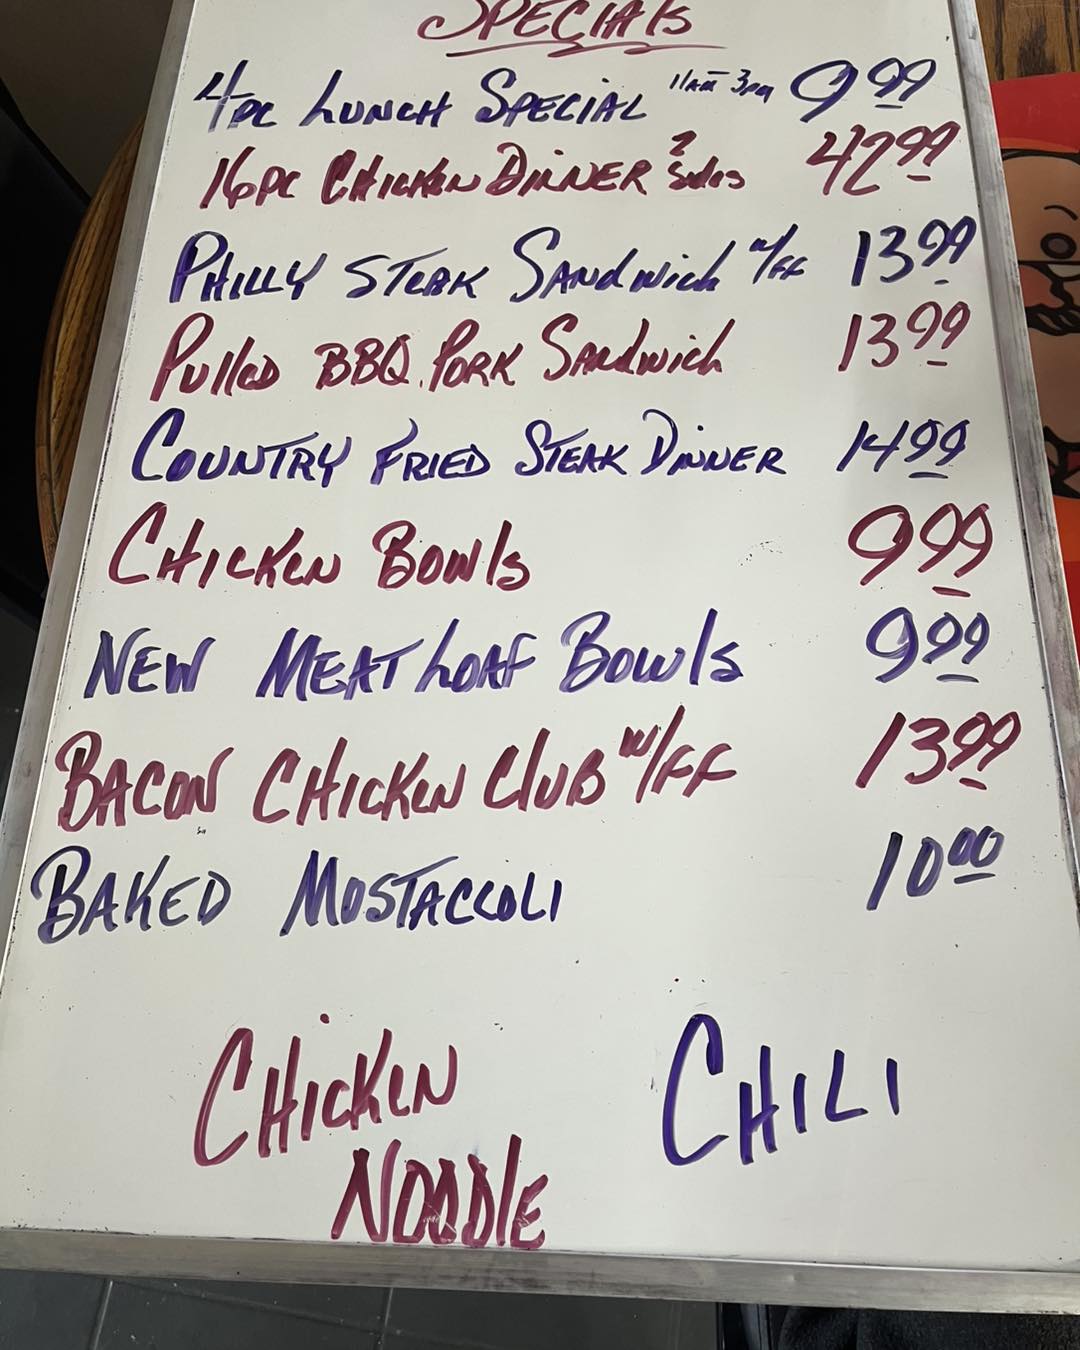 SPECIAlS
4pc LUNCH SPECIAL 11AM-3PM 9.99
16pc CHICKEN DINNER 2 Sides 42.99
PHILLY STEAK SANdwich w/FF 13.99
PUlled BBQ. PORK SANdwich 13.99
COUNTRY FRIED STEAK DINNER 14.99
CHICKEN BOWlS 9.99
NEW MEATLOAF BOWlS 9.99
BACON CHICKEN ClUB w/FF 13.99
BAKED MOSTACCOLI 10.00
CHICKEN CHILI
NOODlE